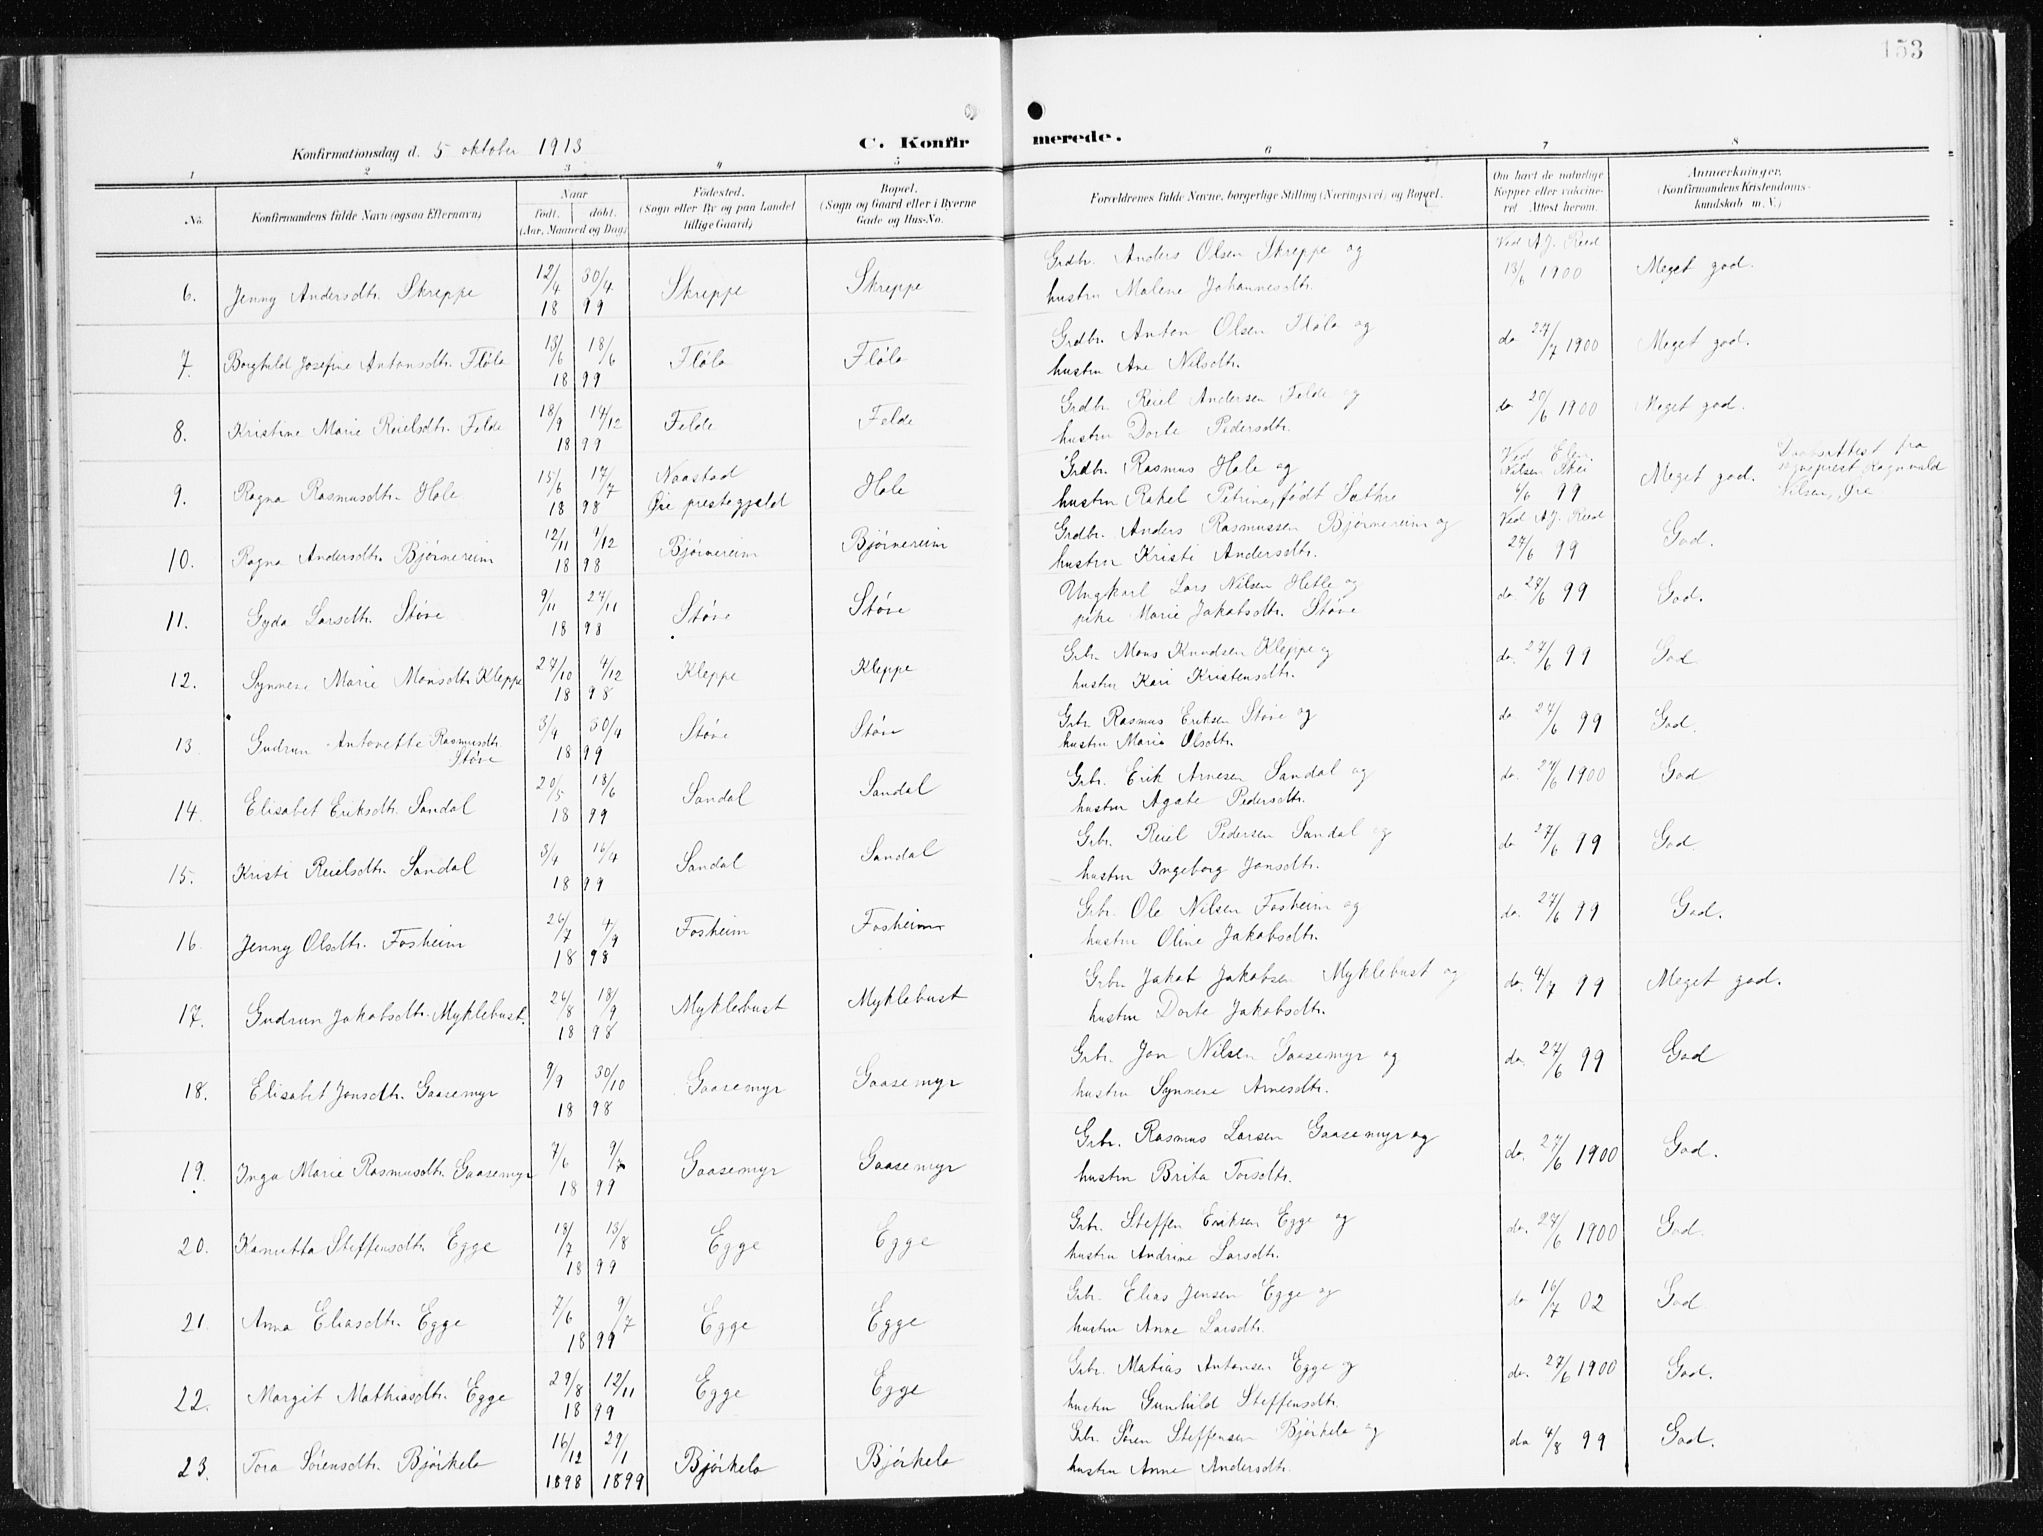 153
Konfirmationsdag d. 5 oktober 1913
C. Konfirmerede.
1 2 3 4 5 6 7 8
No. Konfirmandens fulde Navn (ogsaa Efternavn) Naar født. døbt. (Aar, Maaned og Dag) Fødested. (Sogn eller By og paa Landet tillige Gaard) Bopæl. (Sogn og Gaard eller i Byerne Gade og Hus-No. Forældrenes fulde Navne, borgerlige Stilling (Næringsvei) og Bopæl. Om havt de naturlige Kopper eller vaccineret. Attest herom. Anmærkninger. (Konfirmandens Kristendomskundskab m. V.)
6. Jenny Andersdtr. Skreppe 12/4 30/4 1899 Skreppe Skreppe Grdbr. Anders Olsen Skreppe og
hustru Malene Johannesdtr. Ved A.J. Reed 13/6 1900 Meget god.
7. Borghild Josefine Antonsdtr. Fløla 13/6 18/6 1899 Fløla Fløla Grdbr. Anton Olsen Fløla og
hustru Ane Nilsdtr. do 27/7 1900 Meget god.
8. Kristine Marie Reielsdtr. Felde 18/9 14/12 1899 Felde Felde Grdbr. Reiel Andersen Felde og
hustru Dorte Pedersdtr. do 20/6 1900 Meget god.
9. Ragna Rasmusdtr. Hole 15/6 17/7 1898 Naastad Øre prestegjeld Hole Grdbr. Rasmus Hole og
hustru Rakel Petrine, født Sæthre Ved Elen Nilsen 6/6 99 Meget god. Daabsattest fra sogneprest Ragnvald Nilsen, Øre
10. Ragna Andersdtr. Bjørnereim 12/11 1/12 1898 Bjørnereim Bjørnereim Grdbr. Anders Rasmussen Bjørnereim og
hustru Kristi Andersdtr. Ved A.J. Reed 27/6 99 God.
11. Gyda Larsdtr. Støve 9/11 27/11 1898 Støve Støve Ungkarl Lars Nilsen Hetle og
pike Marie Jakobsdtr. Støve do. 27/6 99 God.
12. Synneve Marie Monsdtr. Kleppe 27/10 4/12 1898 Kleppe Kleppe Grbr. Mons Knudsen Kleppe og
hustru Kari Kristensdtr. do. 27/6 99 God
13. Gudrun Antonette Rasmusdtr. Støve 3/4 30/4 1899 Støve Støve Grbr. Rasmus Eriksen Støve og
hustru Marie Olsdtr. do 27/6 99 God.
14. Elisabet Eriksdtr. Sandal 20/5 18/6 1899 Sandal Sandal Grbr. Erik Arnesen Sandal og
hustru Agate Pedersdtr. do. 27/6 1900 God
15. Kristi Reielsdtr. Sandal 3/4 16/4 1899 Sandal Sandal Grbr. Reiel Pedersen Sandal og
hustru Ingeborg Jonsdtr. do 27/6 99 God.
16. Jenny Olsdtr. Fosheim 26/7 4/9 1898 Fosheim Fosheim Grbr. Ole Nilsen Fosheim og
hustru Oline Jakobsdtr. do. 27/6 99 God.
17. Gudrun Jakobsdtr. Myklebust. 26/8 18/9 1898 Myklebust Myklebust Grbr Jakob Jakobsen Myklebust og
hustru Dorte Jakobsdtr. do. 4/7 99 Meget god.
18. Elisabet Jonsdtr. Gaasemyr 9/9 30/10 1898 Gaasemyr Gaasemyr Grbr. Jon Nilsen Gaasemyr og
hustru Synneve Arnesdtr. do. 27/6 99 God
19. Inga Marie Rasmusdtr. Gaasemyr 7/6 9/7 1899 Gaasemyr Gaasemyr Grbr. Rasmus Larsen Gaasemyr og
hustru Brita Torsdtr. do. 27/6 1900 God.
20. Kamitta Steffensdtr. Egge 18/7 13/8 1899 Egge Egge Grbr. Steffen Eriksen Egge og
hustru Andrine Larsdtr. do. 27/6 1900 God.
21. Anna Eliasdtr. Egge 7/6 9/7 1899 Egge Egge Grbr. Elias Jensen Egge og
hustru Anne Larsdtr. do 16/7 02 God
22. Margit Mathiasdtr. Egge 29/8 12/11 1899 Egge Egge Grbr. Matias Antonsen Egge og
hustru Gunhild Steffensdtr. do. 27/6 1900 God.
23. Tora Sørensdtr. Bjørkelo 16/12 1898 29/1 1899 Bjørkelo Bjørkelo Grbr. Søren Steffensen Bjørkelo og
hustru Anne Andersdtr. do 4/8 99 God.